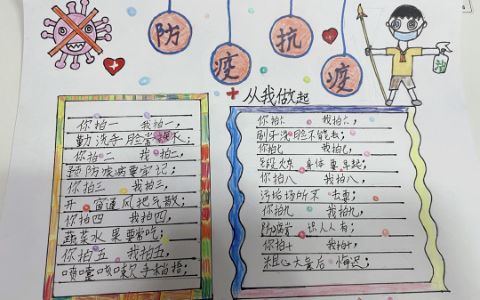 防
疫
抗
疫
从我做起
你拍一 我拍一,
勤洗手 脸常
你拍二 我拍二,
预防疾病要牢记;
你拍三 我拍三,
开窗通风把
你拍四 我拍四,
蔬菜水果要常吃;
你拍五 我拍五,
喷嚏咳嗽
你拍六 我拍六,
刷牙洗脸不能
你拍七 我拍七,
锻炼身体要早起;
你拍八 我拍八,
污垢场所不去
你拍九 我拍九,
防病 人人有;
你拍十 我拍十,
粗心大意后悔迟;